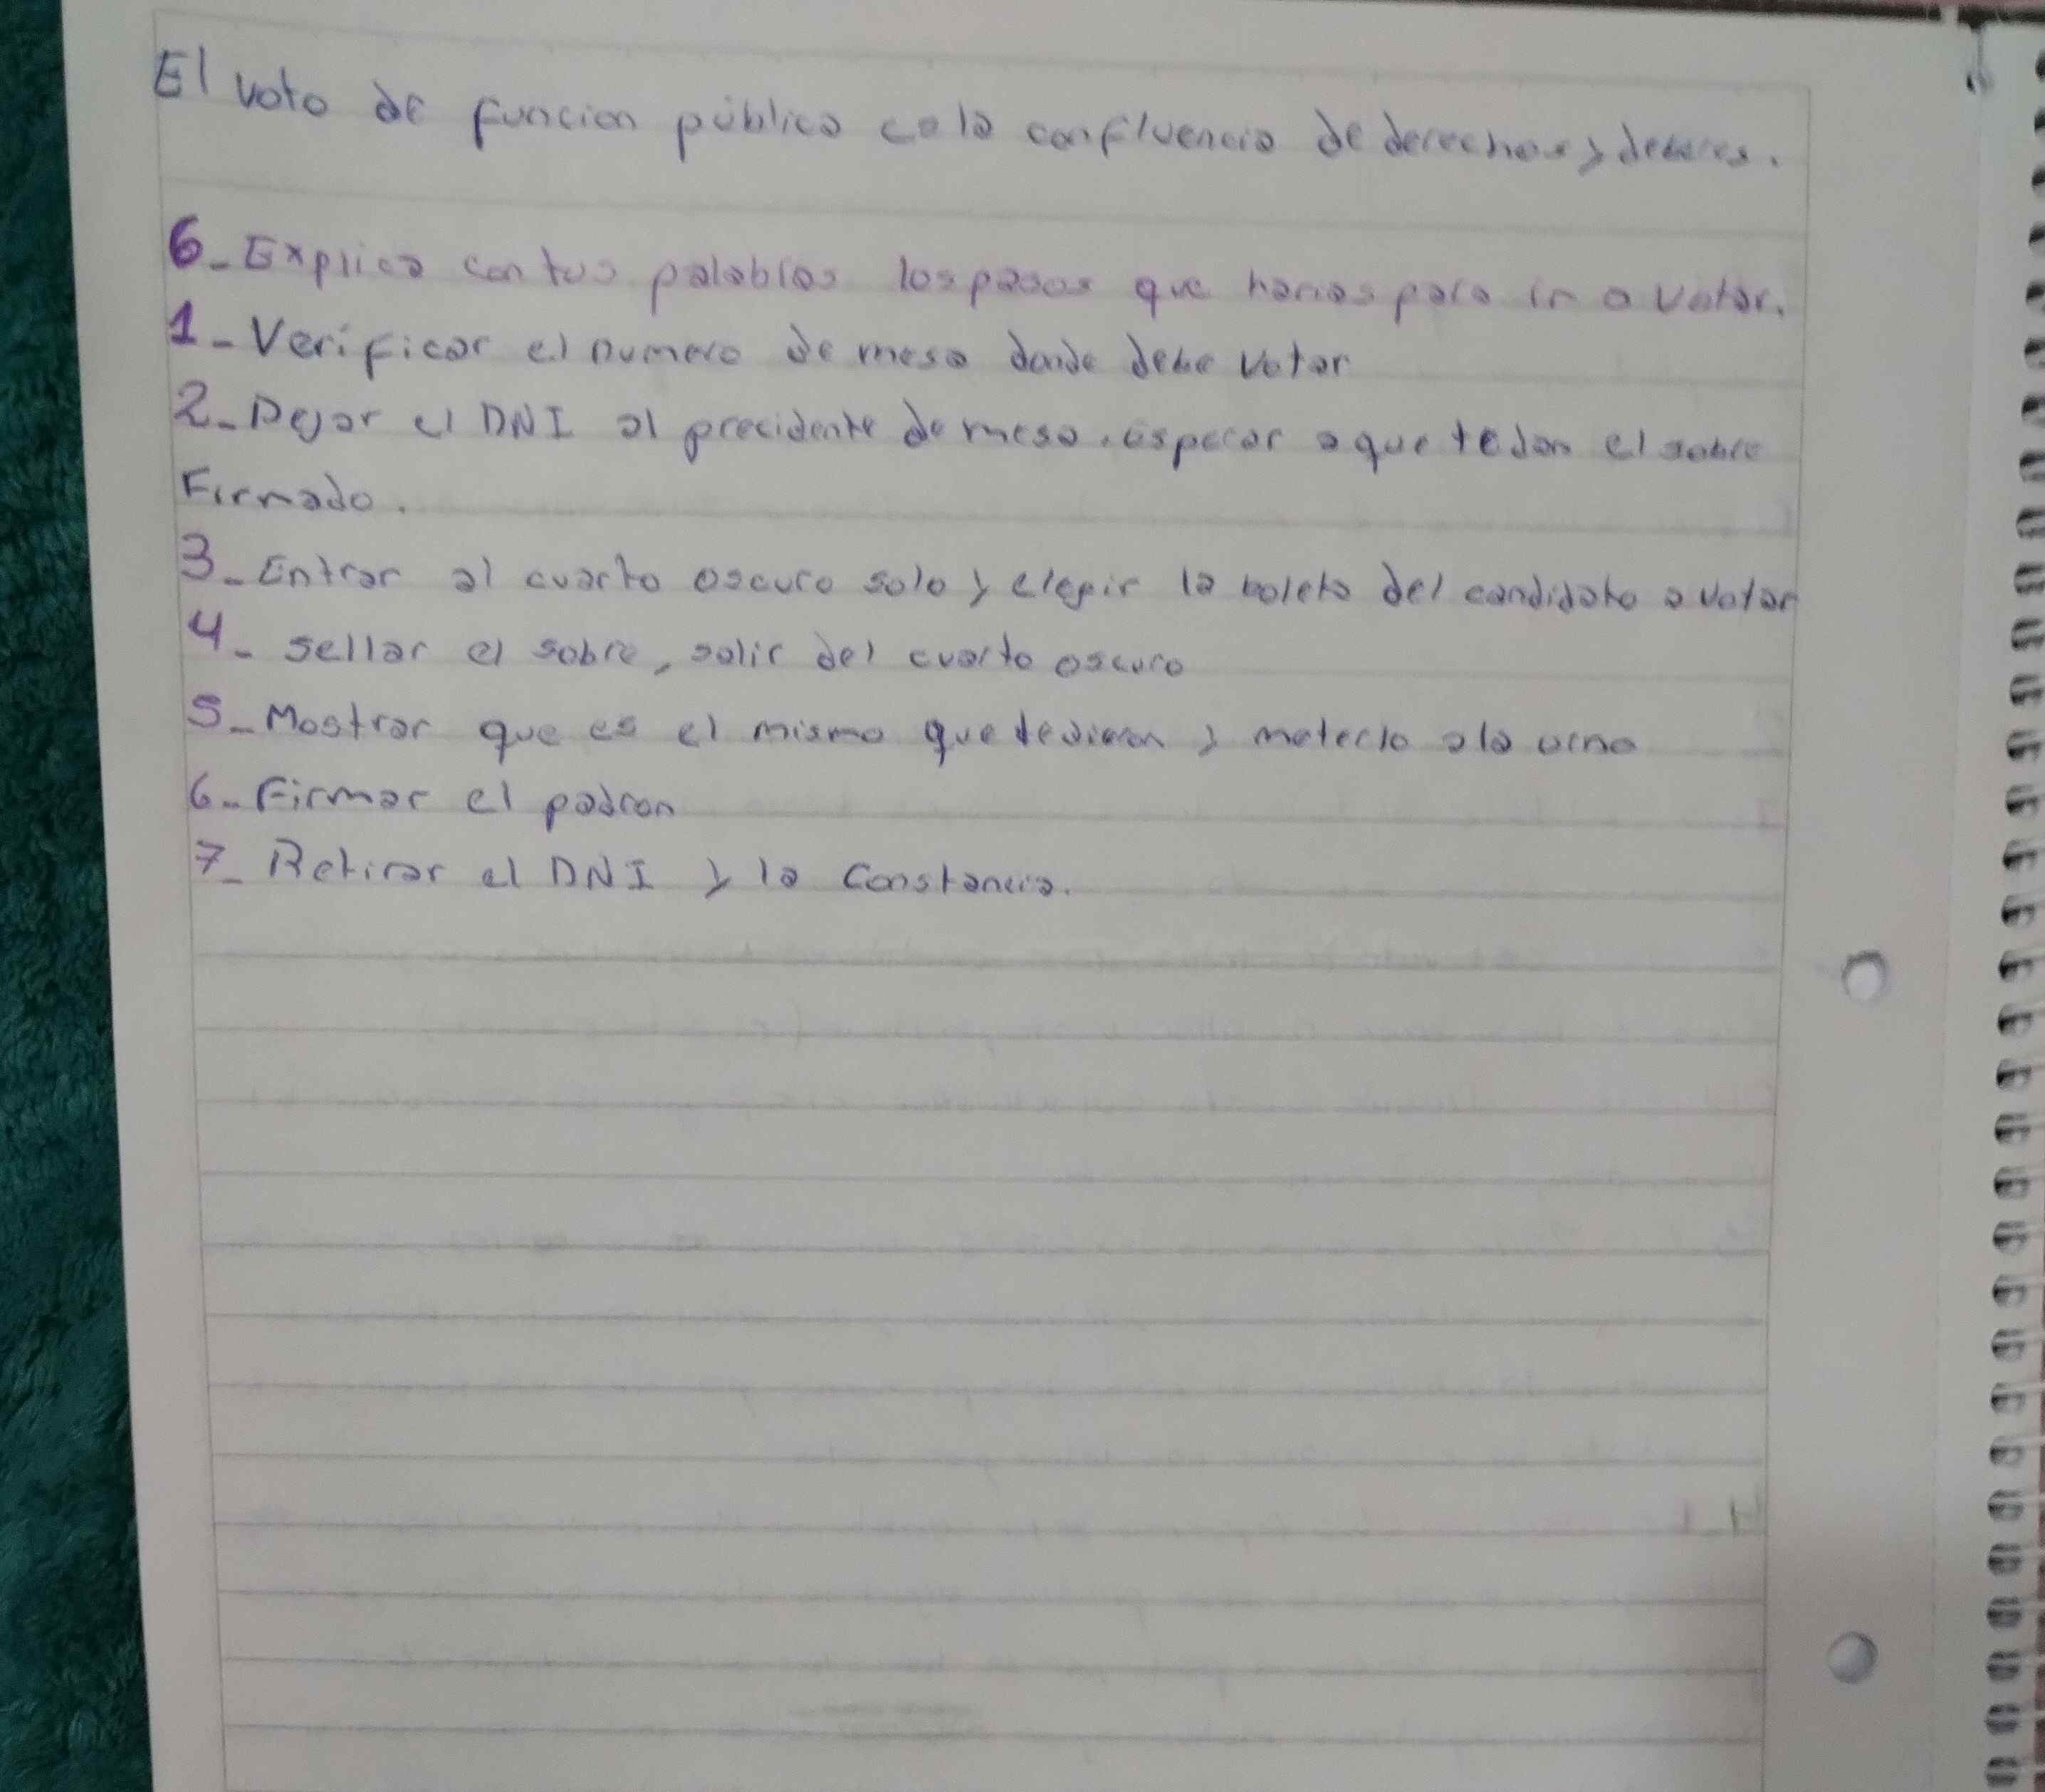 El voto de funcion pública es la confluencia de derechos y deberes.
6_ Explica con tus palabras los pasos que harias para ir a votar.
1_ Verificar el numero de mesa donde debe votar
2_ Dejar el DNI al precidente de mesa. esperar a que te dan el sobre
Firmado.
3_ Entrar al cuarto oscuro solo y elegir la boleta del candidato a votar
4_ Sellar el sobre, salir del cuarto oscuro
5_ Mostrar que es el mismo que te dieron y meterlo a la urna
6_ Firmar el padron
7_ Retirar el DNI y la constancia.